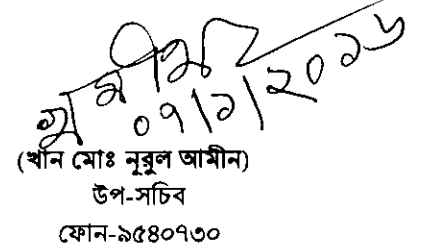 ০৭/১/২০১৬
(খান মোঃ নূরুল আমীন)
উপ-সচিব
ফোন-৯৫৪০৭৩০